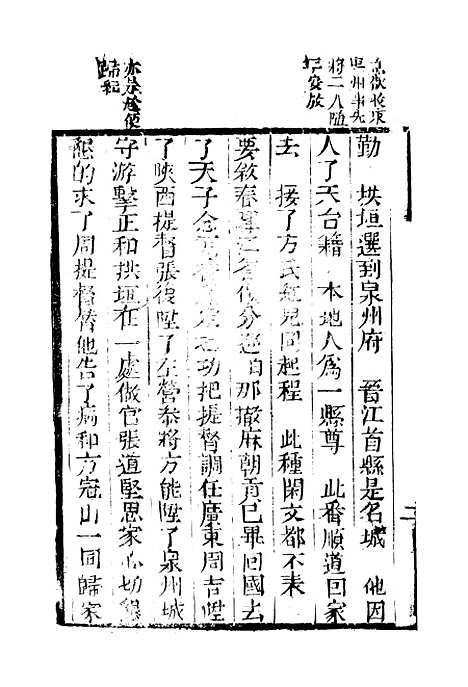 將二人隨
亦是趁便
歸程
勤 拱垣選到泉州府 晉江首縣是名城 他因
人了天台籍 本地人爲一縣尊 此番順道回家
去 接了方氏 兒同起程 此種閑文都不表
要敘春 那撒麻朝貢已畢回國去
了天子念 之功把提督調任廣東周吉陞
了陝西提督張俊陞了左營叅將方能陞了泉州城
守游擊正和拱垣在一處做官張道堅思家心切懇
懇的求了周提督替他告了病和方冠山一同歸家